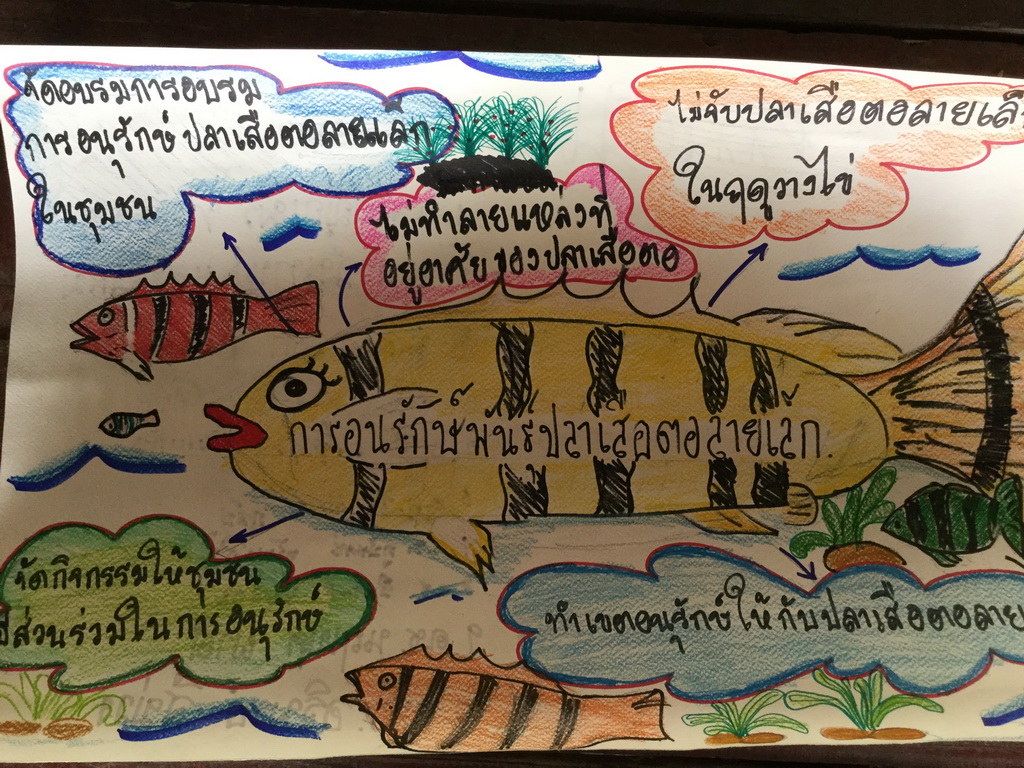 จัดอบรมการอบรม
การอนุรักษ์ปลาเสือตอลายเล็ก
ในชุมชน
ไม่ทำลายแหล่งที่
อยู่อาศัยของปลาเสือตอ
ไม่จับปลาเสือตอลายเล็
ในฤดูวางไข่
การอนุรักษ์พันธุ์ปลาเสือตอลายเล็ก.
จัดกิจกรรมให้ชุมชน
มีส่วนร่วมในการอนุรักษ์
ทำเขตอนุรักษ์ให้กับปลาเสือตอลาย